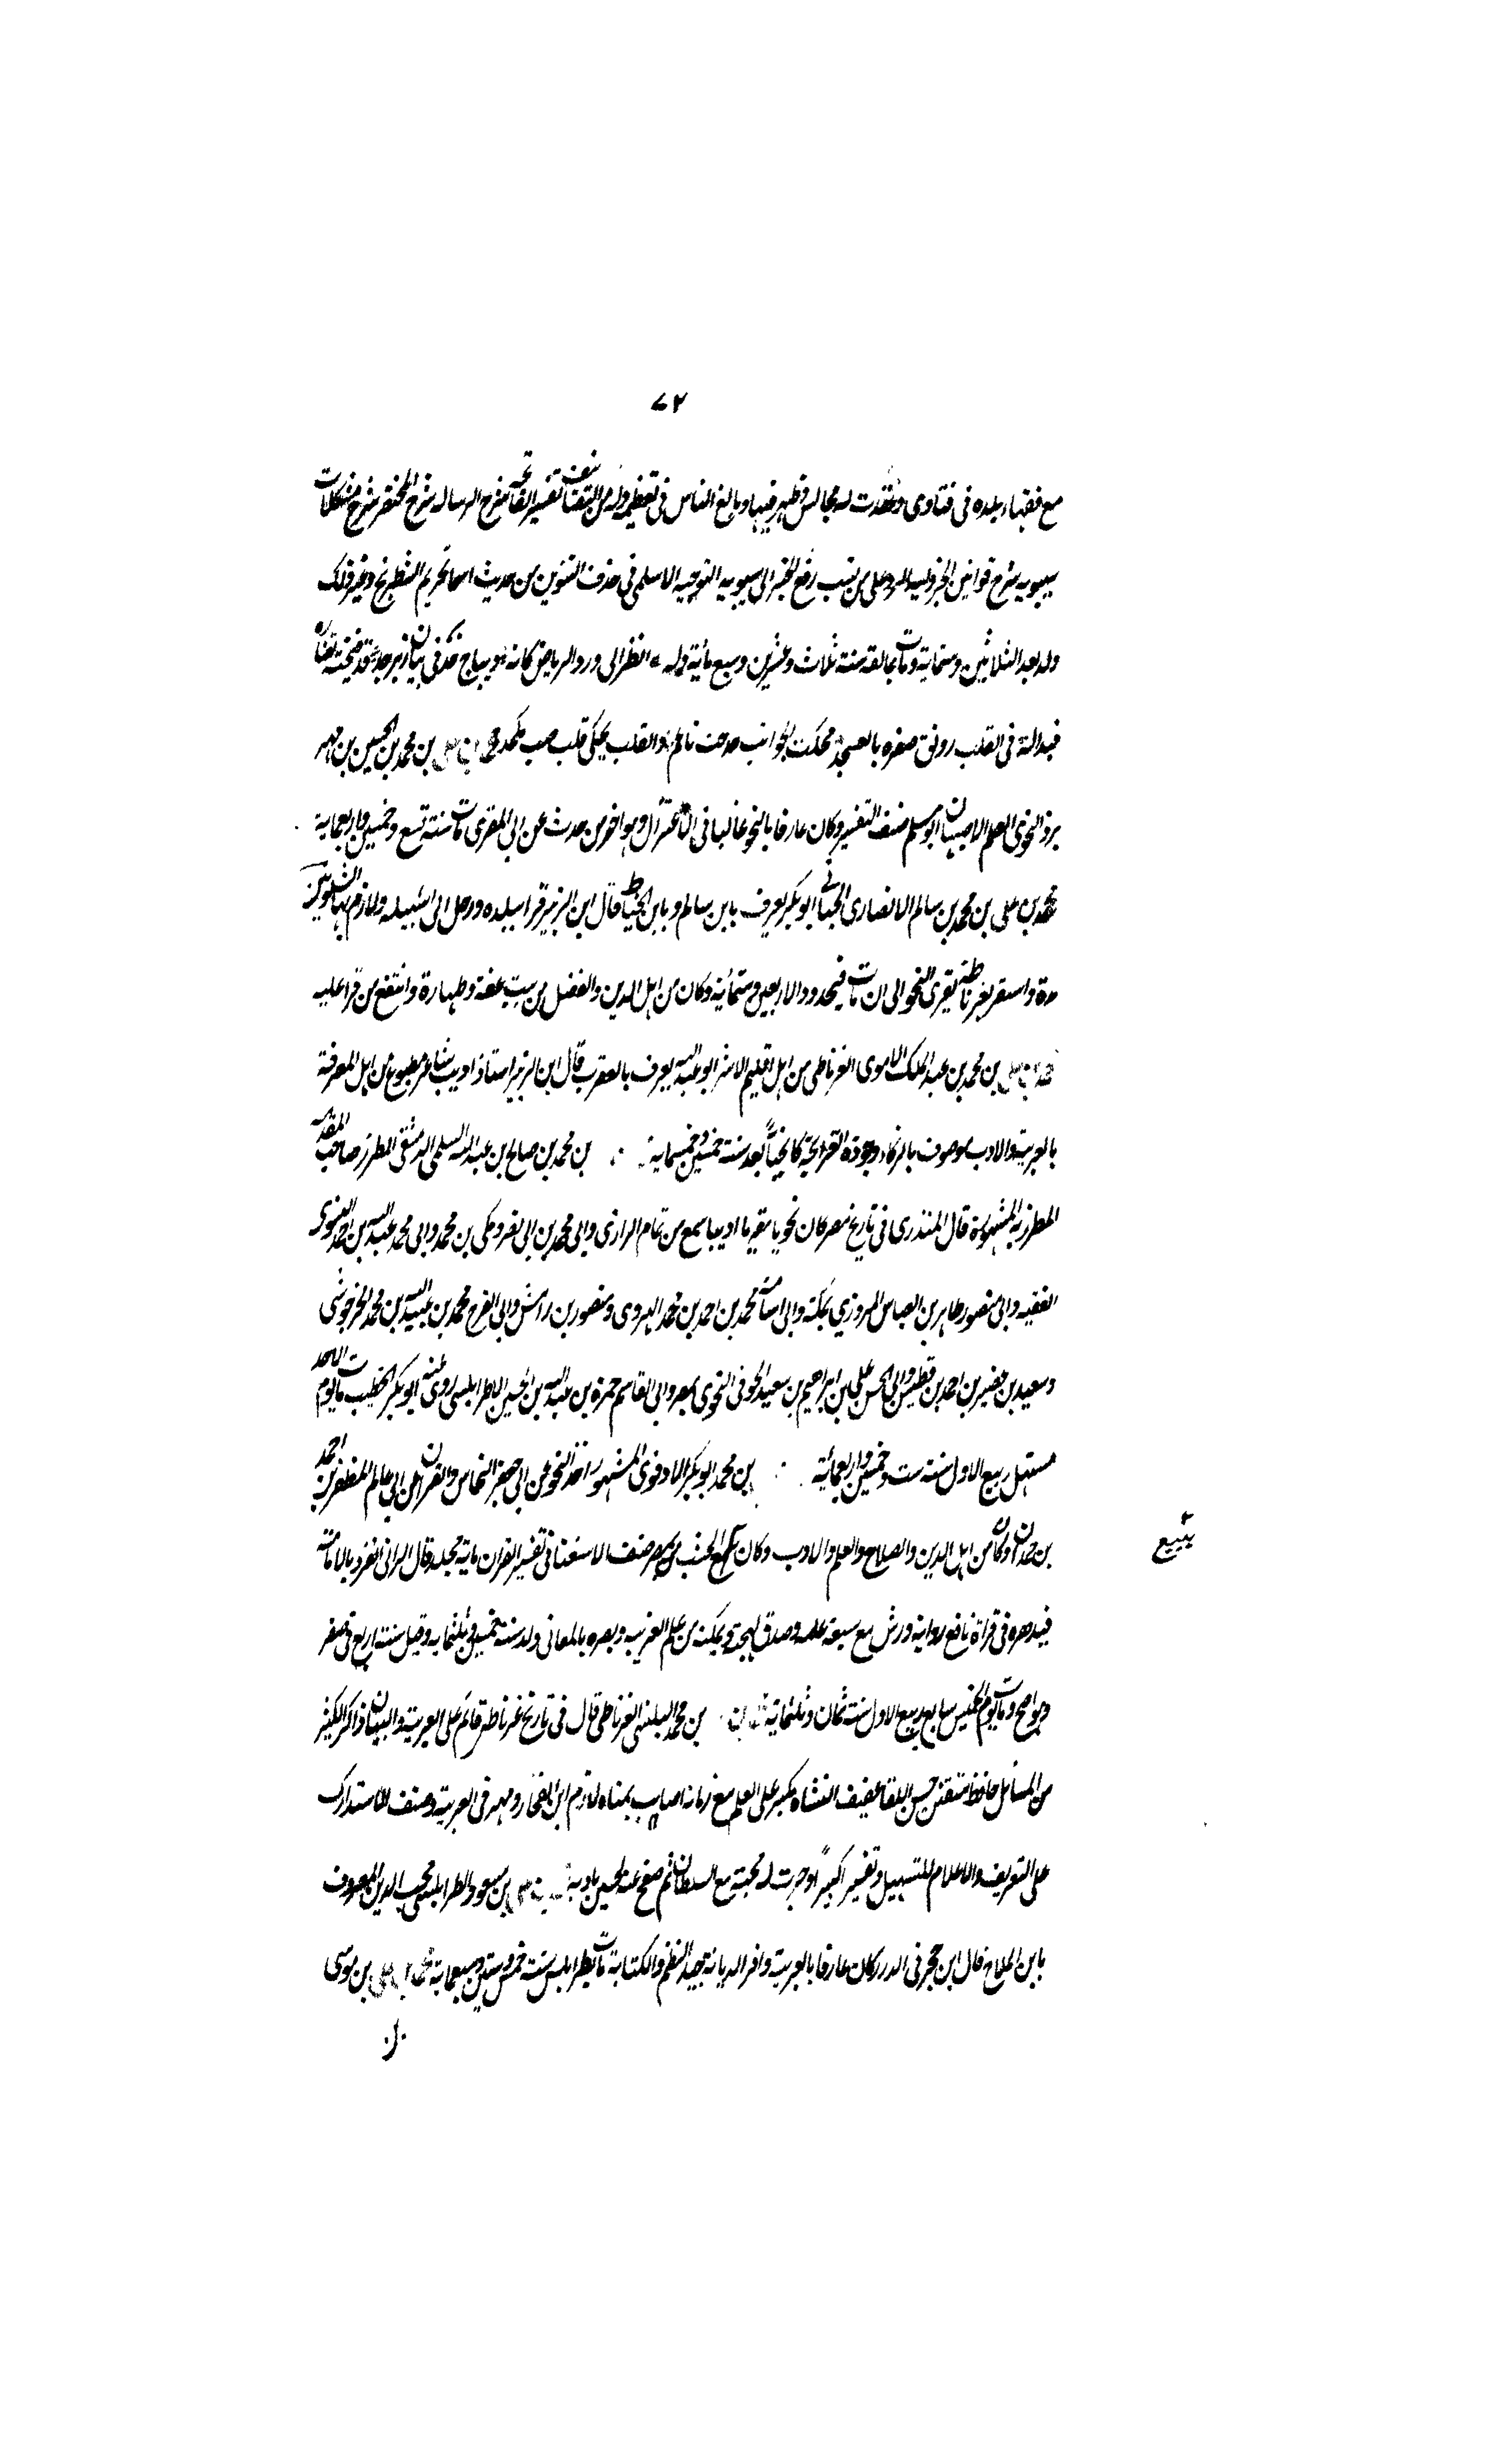 ٧٢
مع فقهاء بلده فى فتاوى وعقدت له مجالس وظهر فيها وبالغ الناس فى تعظيمه وله من التصانيف تفسير الفاتحة شرح الرسالة شرح المختصر شرح مشكلات
سيبويه شرح قوانين الجزولية الرد على من نسب رفع الخبر الى سيبويه التوجيه الاسلمى فى حذف التنوين من حديث اسما تحريم الشطرنج وغير ذلك
ولد بعد الثلاثين وستمائة ومات بمالقة سنة ثلاث وعشرين وسبع مائة وله انظر الى ورد الرياض كانه ديباج خد فى بنان زبرجد قد فتحته نضارة
فبدا له فى القلب رونق صفرة بالعسجد حكت الجوانب خد حب ناعم والقلب يحكى قلب صب مكمد محمد بن على بن محمد بن الحسين بن مهر
بزد النحوى المعلم الاصبهانى ابو مسلم صنف التفسير وكان عارفا بالنحو غاليا فى الاعتزال وهو اخر من حدث عن ابى المقرى مات سنة تسع وخمسين واربعمايه
محمد بن على بن محمد بن سالم الانصارى الجيانى ابو بكر يعرف بابن سالم وبابن الخياط قال ابن الزبير قرا ببلده ورحل الى اشبيلية ولازم بها الشلوبين
مدة واستقر بغرناطة يقرى النحو الى ان مات فى حدود الاربعين وستمائة وكان من اهل الدين والفضل من بيت عفة وطهارة وانتفع من قرا عليه
محمد بن على بن محمد بن عبد الملك الاموى الغرناطى من اهل اقليم الاشر ابو عبد الله يعرف بالعقرب قال ابن الزبير استاذ اديب شاعر مطبوع من اهل المعرفة
بالعربية والادب موصوف بالذكاء وجودة القريحة كان حيا بعد سنة خمسين وخمسماية بن محمد بن صالح بن عبد الله السلمى الدمشقى المطرز صاحب المقدمة
المطرزية المشهورة قال المنذرى فى تاريخ مصر كان نحويا مقريا اديبا سمع من تمام الرازى وابى محمد بن ابى نصر ومكى بن محمد وابى محمد عبد الله بن احمد النسوى
الفقيه وابى منصور طاهر بن العباس المروزي بمكة وابى اسامة محمد بن احمد بن محمد الهروى ومنصور بن رامش وابى الفرج محمد بن عبيد الله بن محمد الخرجوشى
وسعيد بن نصير بن احمد بن فطيس وابى الحسن على بن ابراهيم بن سعيد الحوفى النحوى بمصر وابى القاسم حمزة بن عبد الله بن الحسين الاطرابلسى روى عنه ابو بكر الخطيب مات يوم الاحد
مستهل ربيع الاول سنة ست وخمسين واربعمائة بن محمد ابو بكر الادفوى المشهور اخذ النحو عن ابى جعفر النحاس والقران عن ابى غانم المظفر بن احمد
بن حمدان وكان من اهل الدين والصلاح والعلم والادب وكان يبيع الخشب بمصر صنف الاستغنا فى تفسير القران ماية مجلد قال الدانى انفرد بالامامة
يبيع
فى دهره فى قراة نافع رواية ورش مع سعة علمه وصدق لهجته وتمكنه من علم العربية وبصره بالمعانى ولد سنة خمس وثلثماية وقيل سنة اربع فى صفر
وهو اصح ومات يوم الخميس سابع ربيع الاول سنة ثمان وثلثماية بن محمد البلنسى الغرناطى قال فى تاريخ غرناطة قائم على العربية والبيان ذاكر لكثير
من المسائل حافظ متقن حسن اللقا عفيف النشاة مكبر على العلم مع زمانة اصابت يمناه لازم ابن الفخار ومهر فى العربية وصنف الاستدراك
على التعريف والاعلام للسهيلى وتفسيرا كبيرا وجرت له محبة مع السلطان ثم صفح عنه لحسن ادبه بن على بن مسعود الطرابلسى محب الدين المعروف
بابن الملاح قال ابن حجر فى الدرر كان عارفا بالعربية وافر الديانة جيد النظم والكتابة مات بطرابلس سنة خمس وستين وسبعماية محمد بن على بن موسى